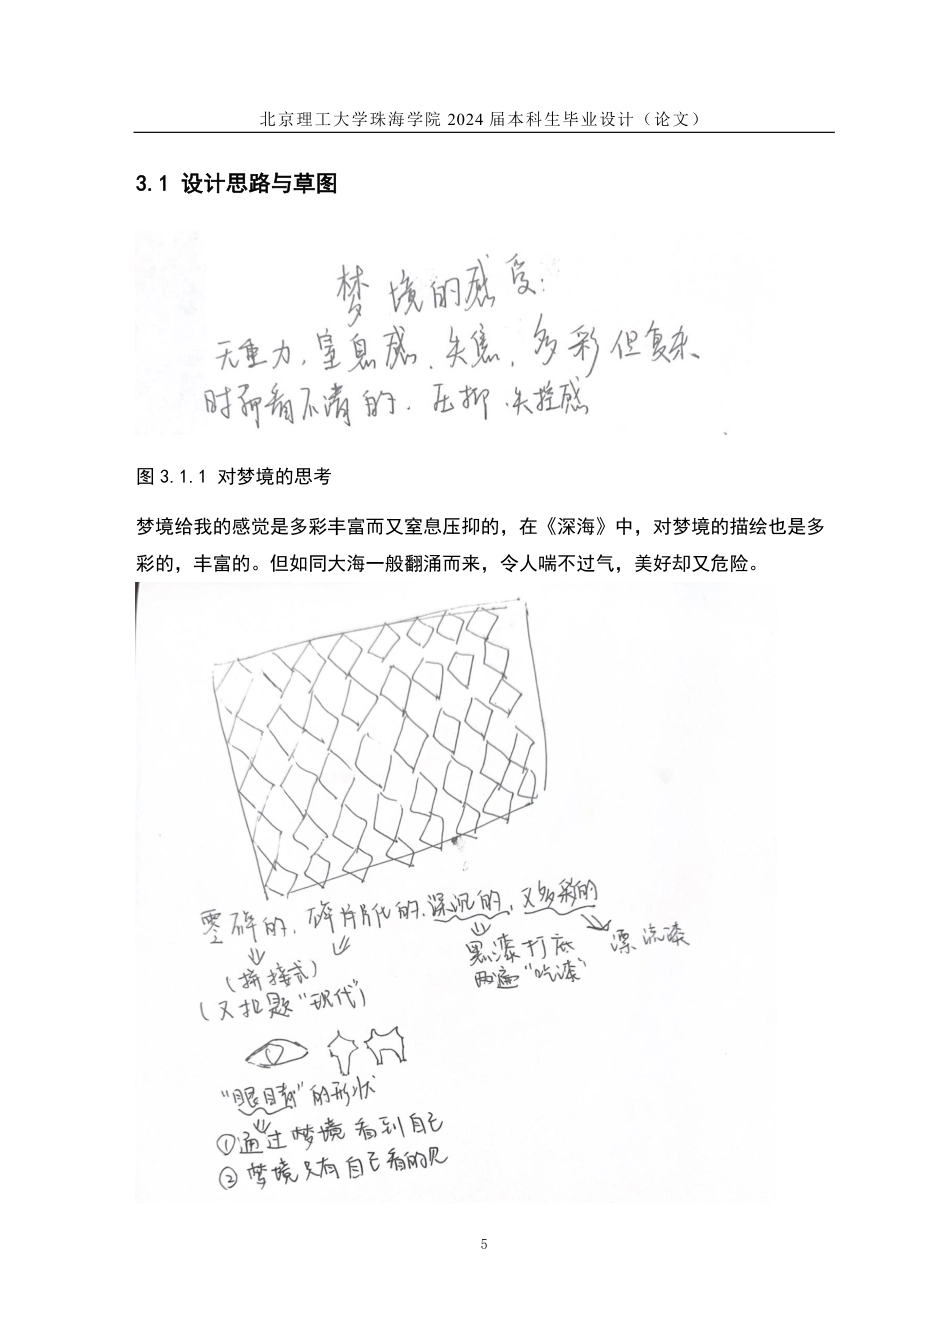 北京理工大学珠海学院 2024 届本科生毕业设计（论文）
3.1 设计思路与草图
梦境的感受：
无重力，窒息感、失焦，多彩但复杂
时而看不清的、压抑、失控感
图 3.1.1 对梦境的思考
梦境给我的感觉是多彩丰富而又窒息压抑的，在《深海》中，对梦境的描绘也是多
彩的，丰富的。但如同大海一般翻涌而来，令人喘不过气，美好却又危险。
零碎的，碎片化的，深沉的，又多彩的
（拼接式） 黑漆打底 漂流漆
两遍“吃漆”
（又扣题“现代”）
“眼睛”的形状
①通过梦境看到自己
②梦境只有自己看的见
5